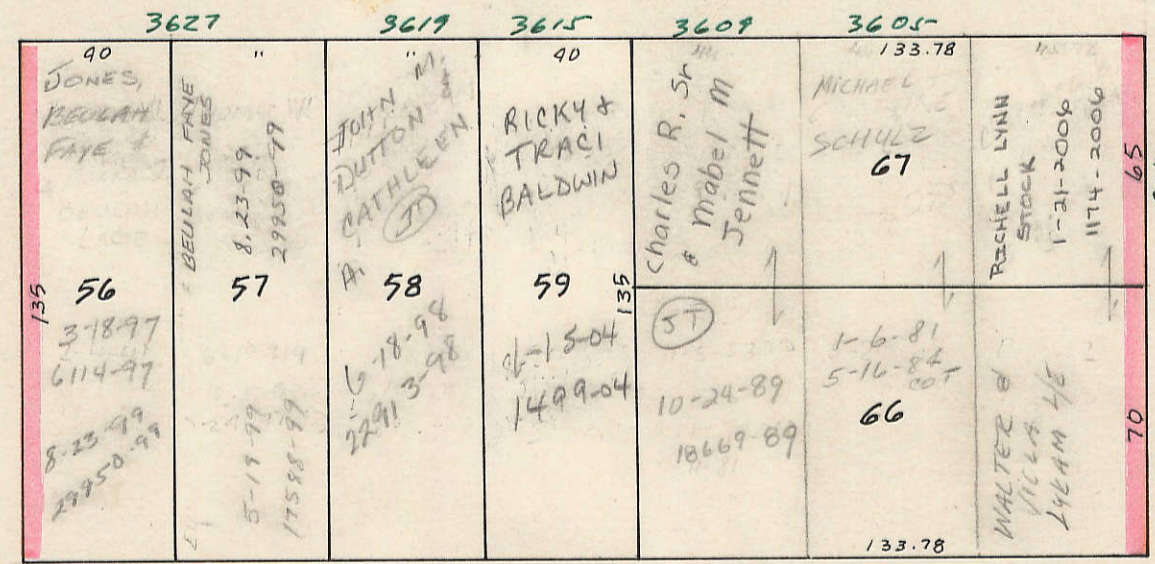 3627 3619 3615 3609 3605
40
JONES,
BEULAH
FAYE &
135
56
3-18-97
6114-97
8-23-99
29950-99
"
BEULAH FAYE
JONES
8-23-99
29950-99
57
5-19-99
17588-99
"
JOHN M.
DUTTON &
CATHLEEN
A.
JT
58
6-18-98
22913-98
40
RICKY &
TRACI
BALDWIN
59
135
1-15-04
1499-04
Charles R, Sr
& Mabel M
Jennett
JT
10-24-89
18669-89
133.78
MICHAEL
SCHULZ
67
1-6-81
5-16-84
COT
66
133.78
RICHELL LYNN
STOCK
1-21-2006
1174-2006
WALTER &
VILLA
65
70